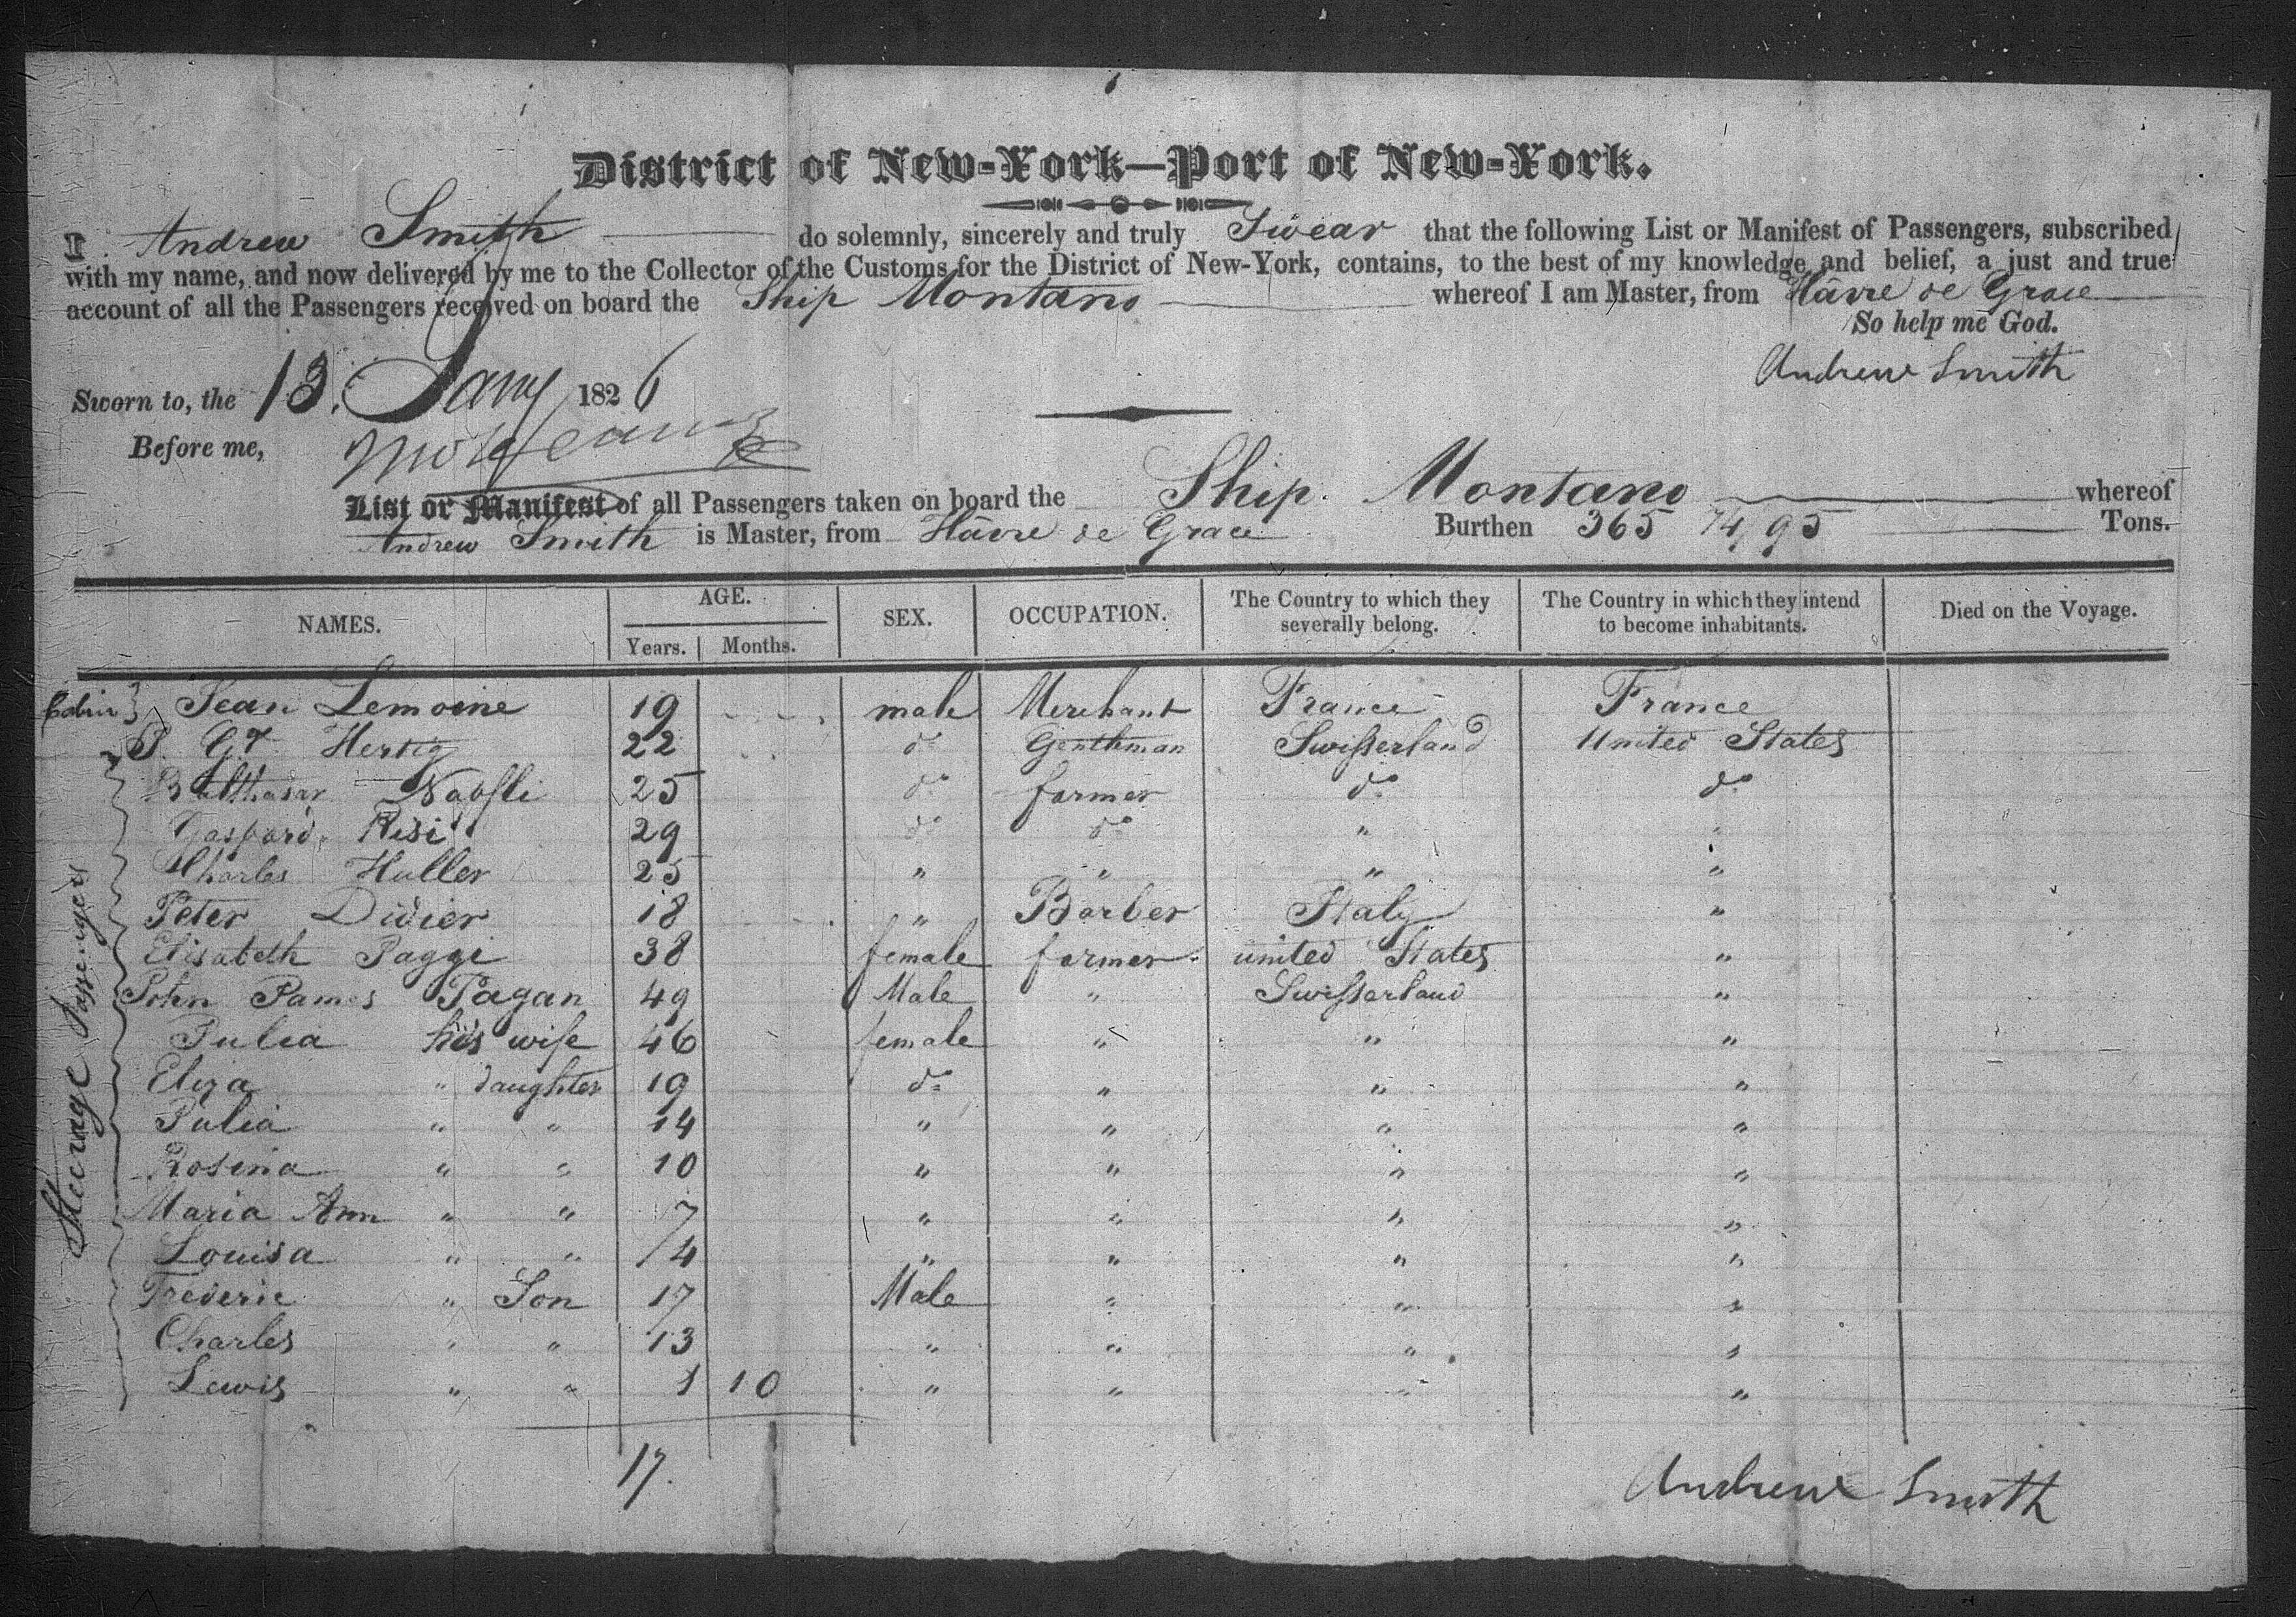 District of New-York—Port of New-York.
I Andrew Smith do solemnly, sincerely and truly Swear that the following List or Manifest of Passengers, subscribed
with my name, and now delivered by me to the Collector of the Customs for the District of New-York, contains, to the best of my knowledge and belief, a just and true
account of all the Passengers received on board the Ship Montano whereof I am Master, from Hâvre de Grace
So help me God.
Andrew Smith
Sworn to, the 13. Jany 1826
Before me,
List or Manifest of all Passengers taken on board the Ship Montano whereof
Andrew Smith is Master, from Hâvre de Grace Burthen 365 74/95 Tons.
NAMES. AGE. SEX. OCCUPATION. The Country to which they severally belong. The Country in which they intend to become inhabitants. Died on the Voyage.
Years. Months.
Cabin } Jean Lemoine 19 male Merchant France France
Steerage Passengers
Hertig 22 do Gentleman Swisserland United States
Balthasar 25 do farmer do do
Gaspard Risi 29 do do " "
Charles Huller 25 " " " "
Peter Didier 18 " Barber Italy "
Elisabeth Paggi 38 female farmer united States "
John James Pagan 49 Male " Swisserland "
Julia his wife 46 female " " "
Eliza " daughter 19 do " " "
Julia " " 14 " " " "
Rosina " " 10 " " " "
Maria Ann " " 7 " " " "
Louisa " " 4 " " " "
Frederic " Son 17 Male " " "
Charles " " 13 " " " "
Lewis " " 1 10 " " " "
17.
Andrew Smith